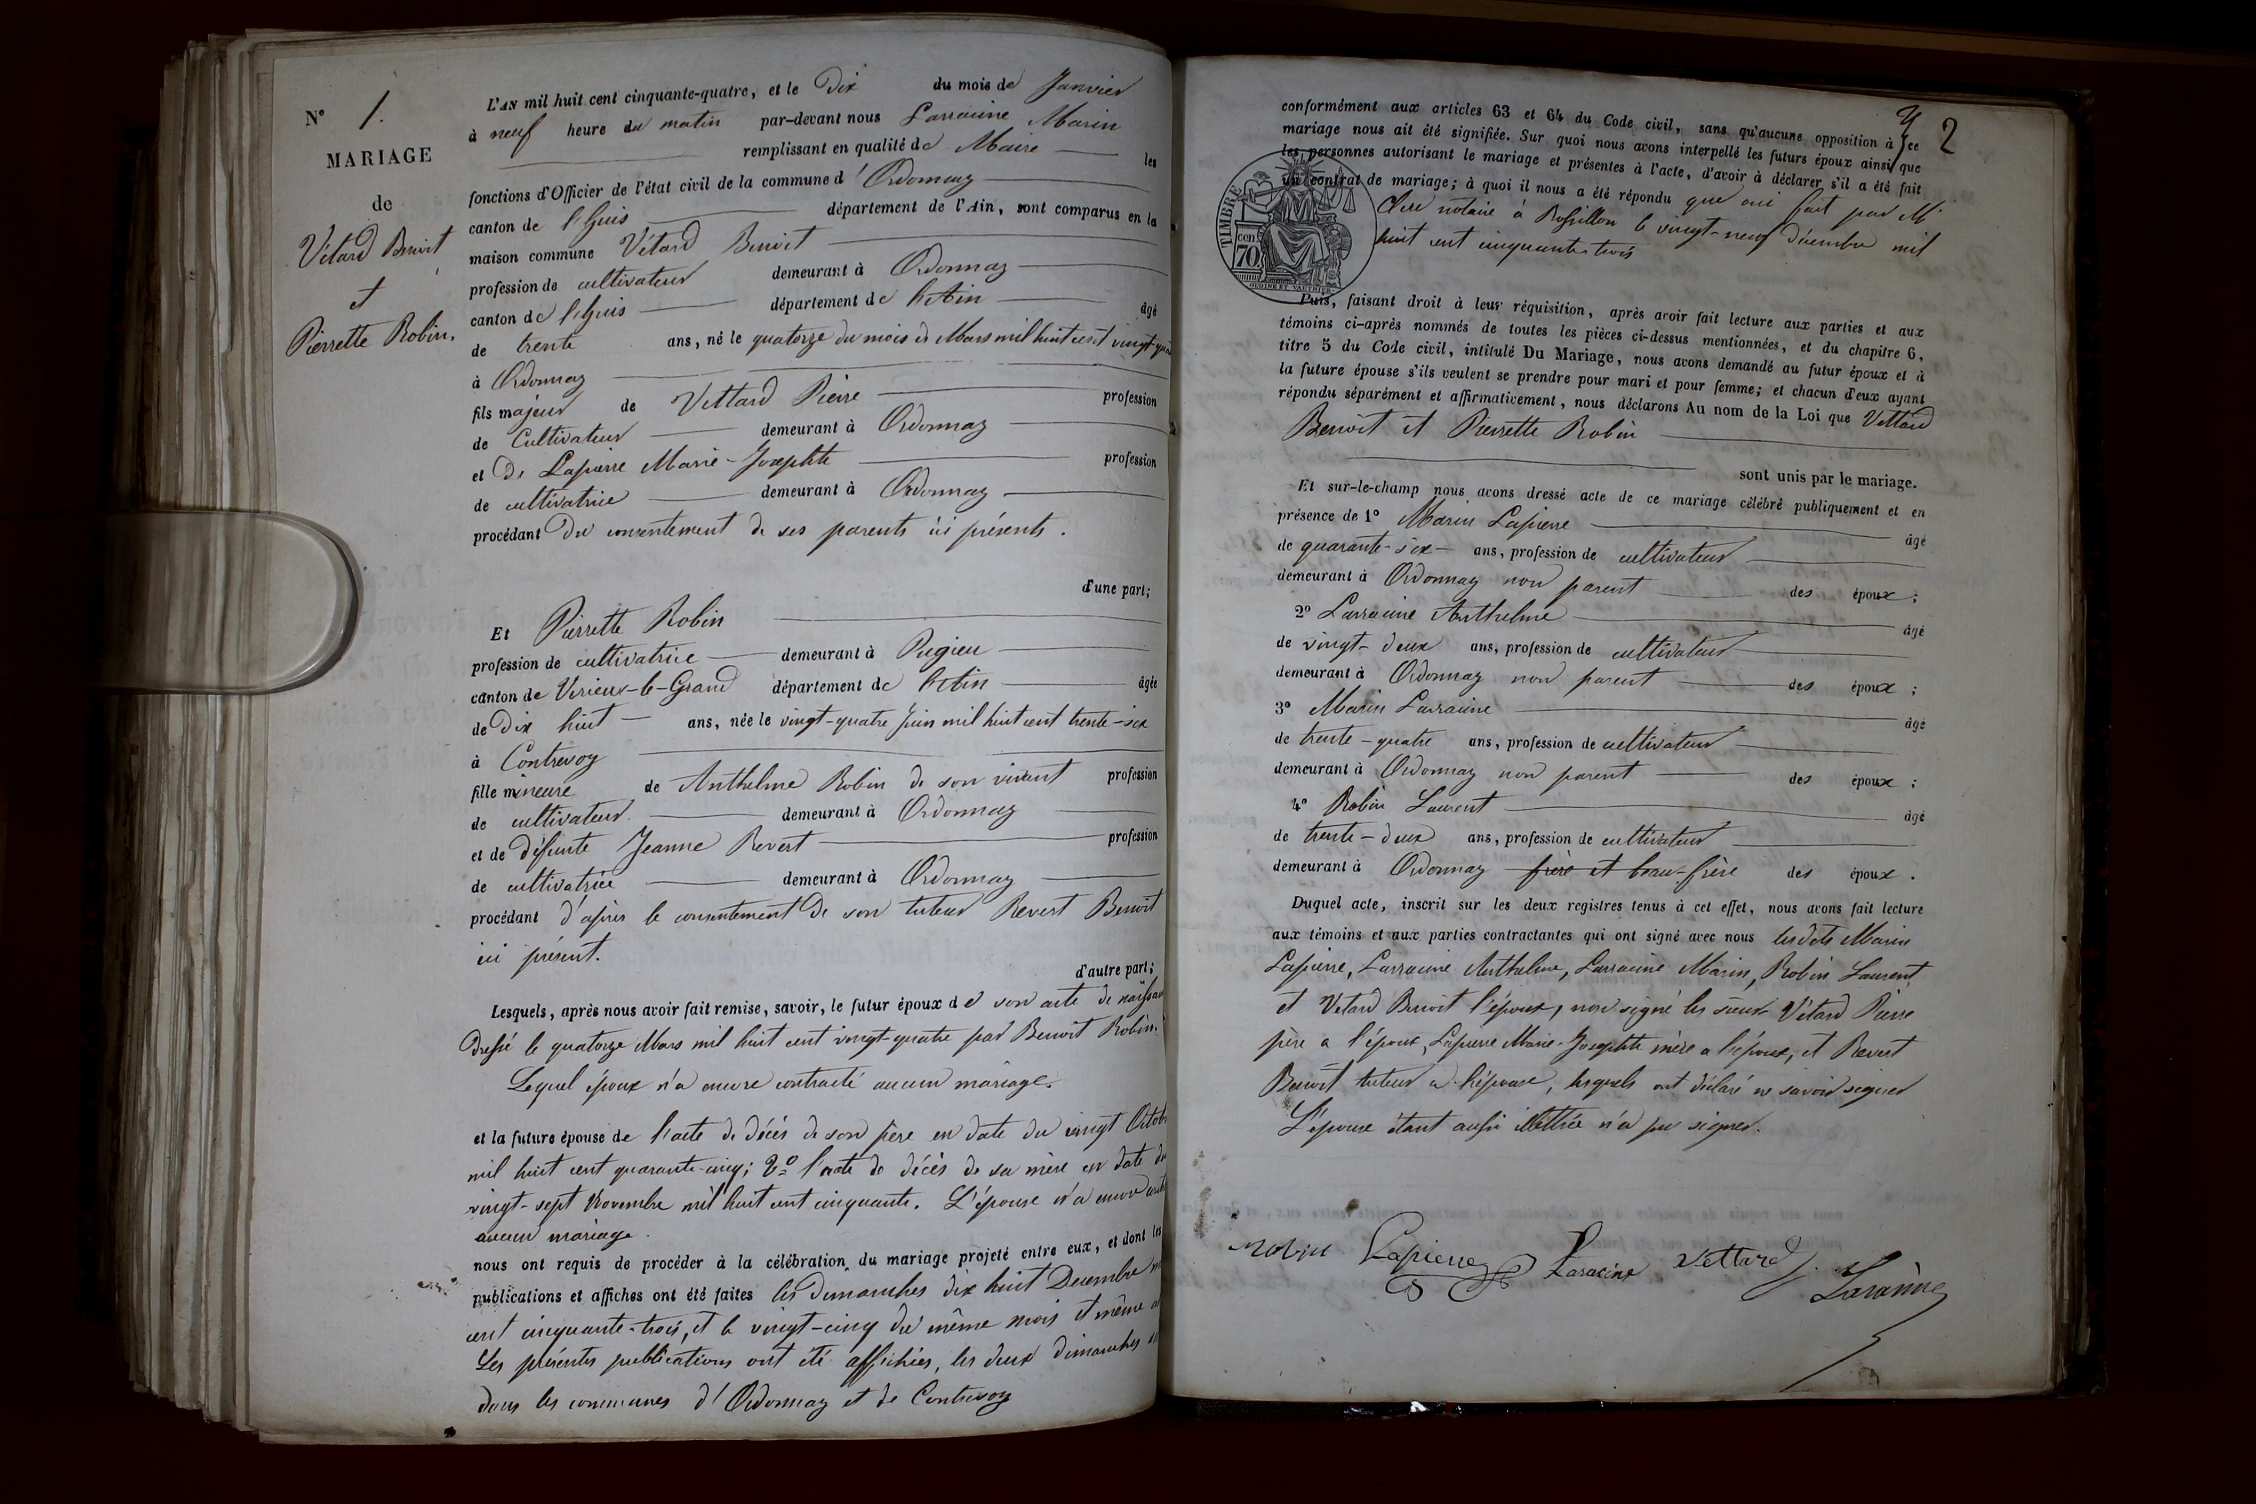 N° 1.
MARIAGE
de
Vétard Benoit
et
Pierrette Robin.
L'AN mil huit cent cinquante-quatre, et le Dix du mois de Janvier
à neuf heure du matin par-devant nous Larracine Marin
remplissant en qualité de Maire les
fonctions d'Officier de l'état civil de la commune d'Ordonnaz
canton de l'huis département de l'Ain, sont comparus en la
maison commune Vétard Benoit
profession de cultivateur demeurant à Ordonnaz
canton de l'huis département de l'Ain âgé
de trente ans, né le quatorze du mois de Mars mil huit cent vingt
à Ordonnaz
fils majeur de Vettard Pierre profession
de Cultivateur demeurant à Ordonnaz
et De Lapierre Marie-Josephte profession
de cultivatrice demeurant à Ordonnaz
procédant Du consentement de ses parents ici présents.
d'une part;
Et Pierrette Robin
profession de cultivatrice demeurant à Pugieu
canton de Virieux-le-Grand département de l'Ain âgée
de Dix huit ans, née le vingt-quatre Juin mil huit cent trente-six
à Contrevoz
fille mineure de Anthelme Robin de son vivant profession
de cultivateur demeurant à Ordonnaz
et de défunte Jeanne Revert profession
de cultivatrice demeurant à Ordonnaz
procédant d'après le consentement De son tuteur Revert Benoit
ici présent.
d'autre part;
Lesquels, après nous avoir fait remise, savoir, le futur époux de son acte de
dressé le quatorze Mars mil huit cent vingt-quatre par Benoit Robin.
Lequel époux n'a encore contracté aucun mariage.
et la future épouse de l'acte de décès de son père en date du vingt
mil huit cent quarante-cinq; 2° l'acte de décès de sa mère en date du
vingt-sept Novembre mil huit cent cinquante. L'épouse n'a encore
aucun mariage.
nous ont requis de procéder à la célébration du mariage projeté entre eux, et dont les
publications et affiches ont été faites les Dimanches dix huit Decembre
cent cinquante-trois, et le vingt-cinq du même mois et même
Les présentes publications ont été affichées, les deux dimanches
dans les communes d'Ordonnaz et de Contrevoz
2
conformément aux articles 63 et 64 du Code civil, sans qu'aucune opposition à ce
mariage nous ait été signifiée. Sur quoi nous avons interpellé les futurs époux ainsi que
les personnes autorisant le mariage et présentes à l'acte, d'avoir à déclarer s'il a été fait
un contrat de mariage; à quoi il nous a été répondu que oui fait par Me
Clerc notaire à Rossillon le vingt-neuf décembre mil
huit cent cinquante trois
TIMBRE
70
Puis, faisant droit à leur réquisition, après avoir fait lecture aux parties et aux
témoins ci-après nommés de toutes les pièces ci-dessus mentionnées, et du chapitre 6,
titre 5 du Code civil, intitulé Du Mariage, nous avons demandé au futur époux et à
la future épouse s'ils veulent se prendre pour mari et pour femme; et chacun d'eux ayant
répondu séparément et affirmativement, nous déclarons Au nom de la Loi que Vettard
Benoit et Pierrette Robin
sont unis par le mariage.
Et sur-le-champ nous avons dressé acte de ce mariage célébré publiquement et en
présence de 1° Marin Lapierre âgé
de quarante-six ans, profession de cultivateur
demeurant à Ordonnaz non parent des époux;
2° Larracine Anthelme âgé
de vingt-deux ans, profession de cultivateur
demeurant à Ordonnaz non parent des époux;
3° Marin Larracine âgé
de trente-quatre ans, profession de cultivateur
demeurant à Ordonnaz non parent des époux;
4° Robin Laurent âgé
de trente-deux ans, profession de cultivateur
demeurant à Ordonnaz frère et beau-frère des époux.
Duquel acte, inscrit sur les deux registres tenus à cet effet, nous avons fait lecture
aux témoins et aux parties contractantes qui ont signé avec nous les dits Marin
Lapierre, Larracine Anthelme, Larracine Marin, Robin Laurent,
et Vetard Benoit l'époux, non signé les sieurs Vétard Pierre
père a l'époux, Lapierre Marie-Josephte mère a l'époux, et Revert
Benoit tuteur a l'épouse, lesquels ont déclaré ne savoir signer
L'épouse étant aussi illettrée n'a pu signer.
robin Lapierre Laracine Vettard